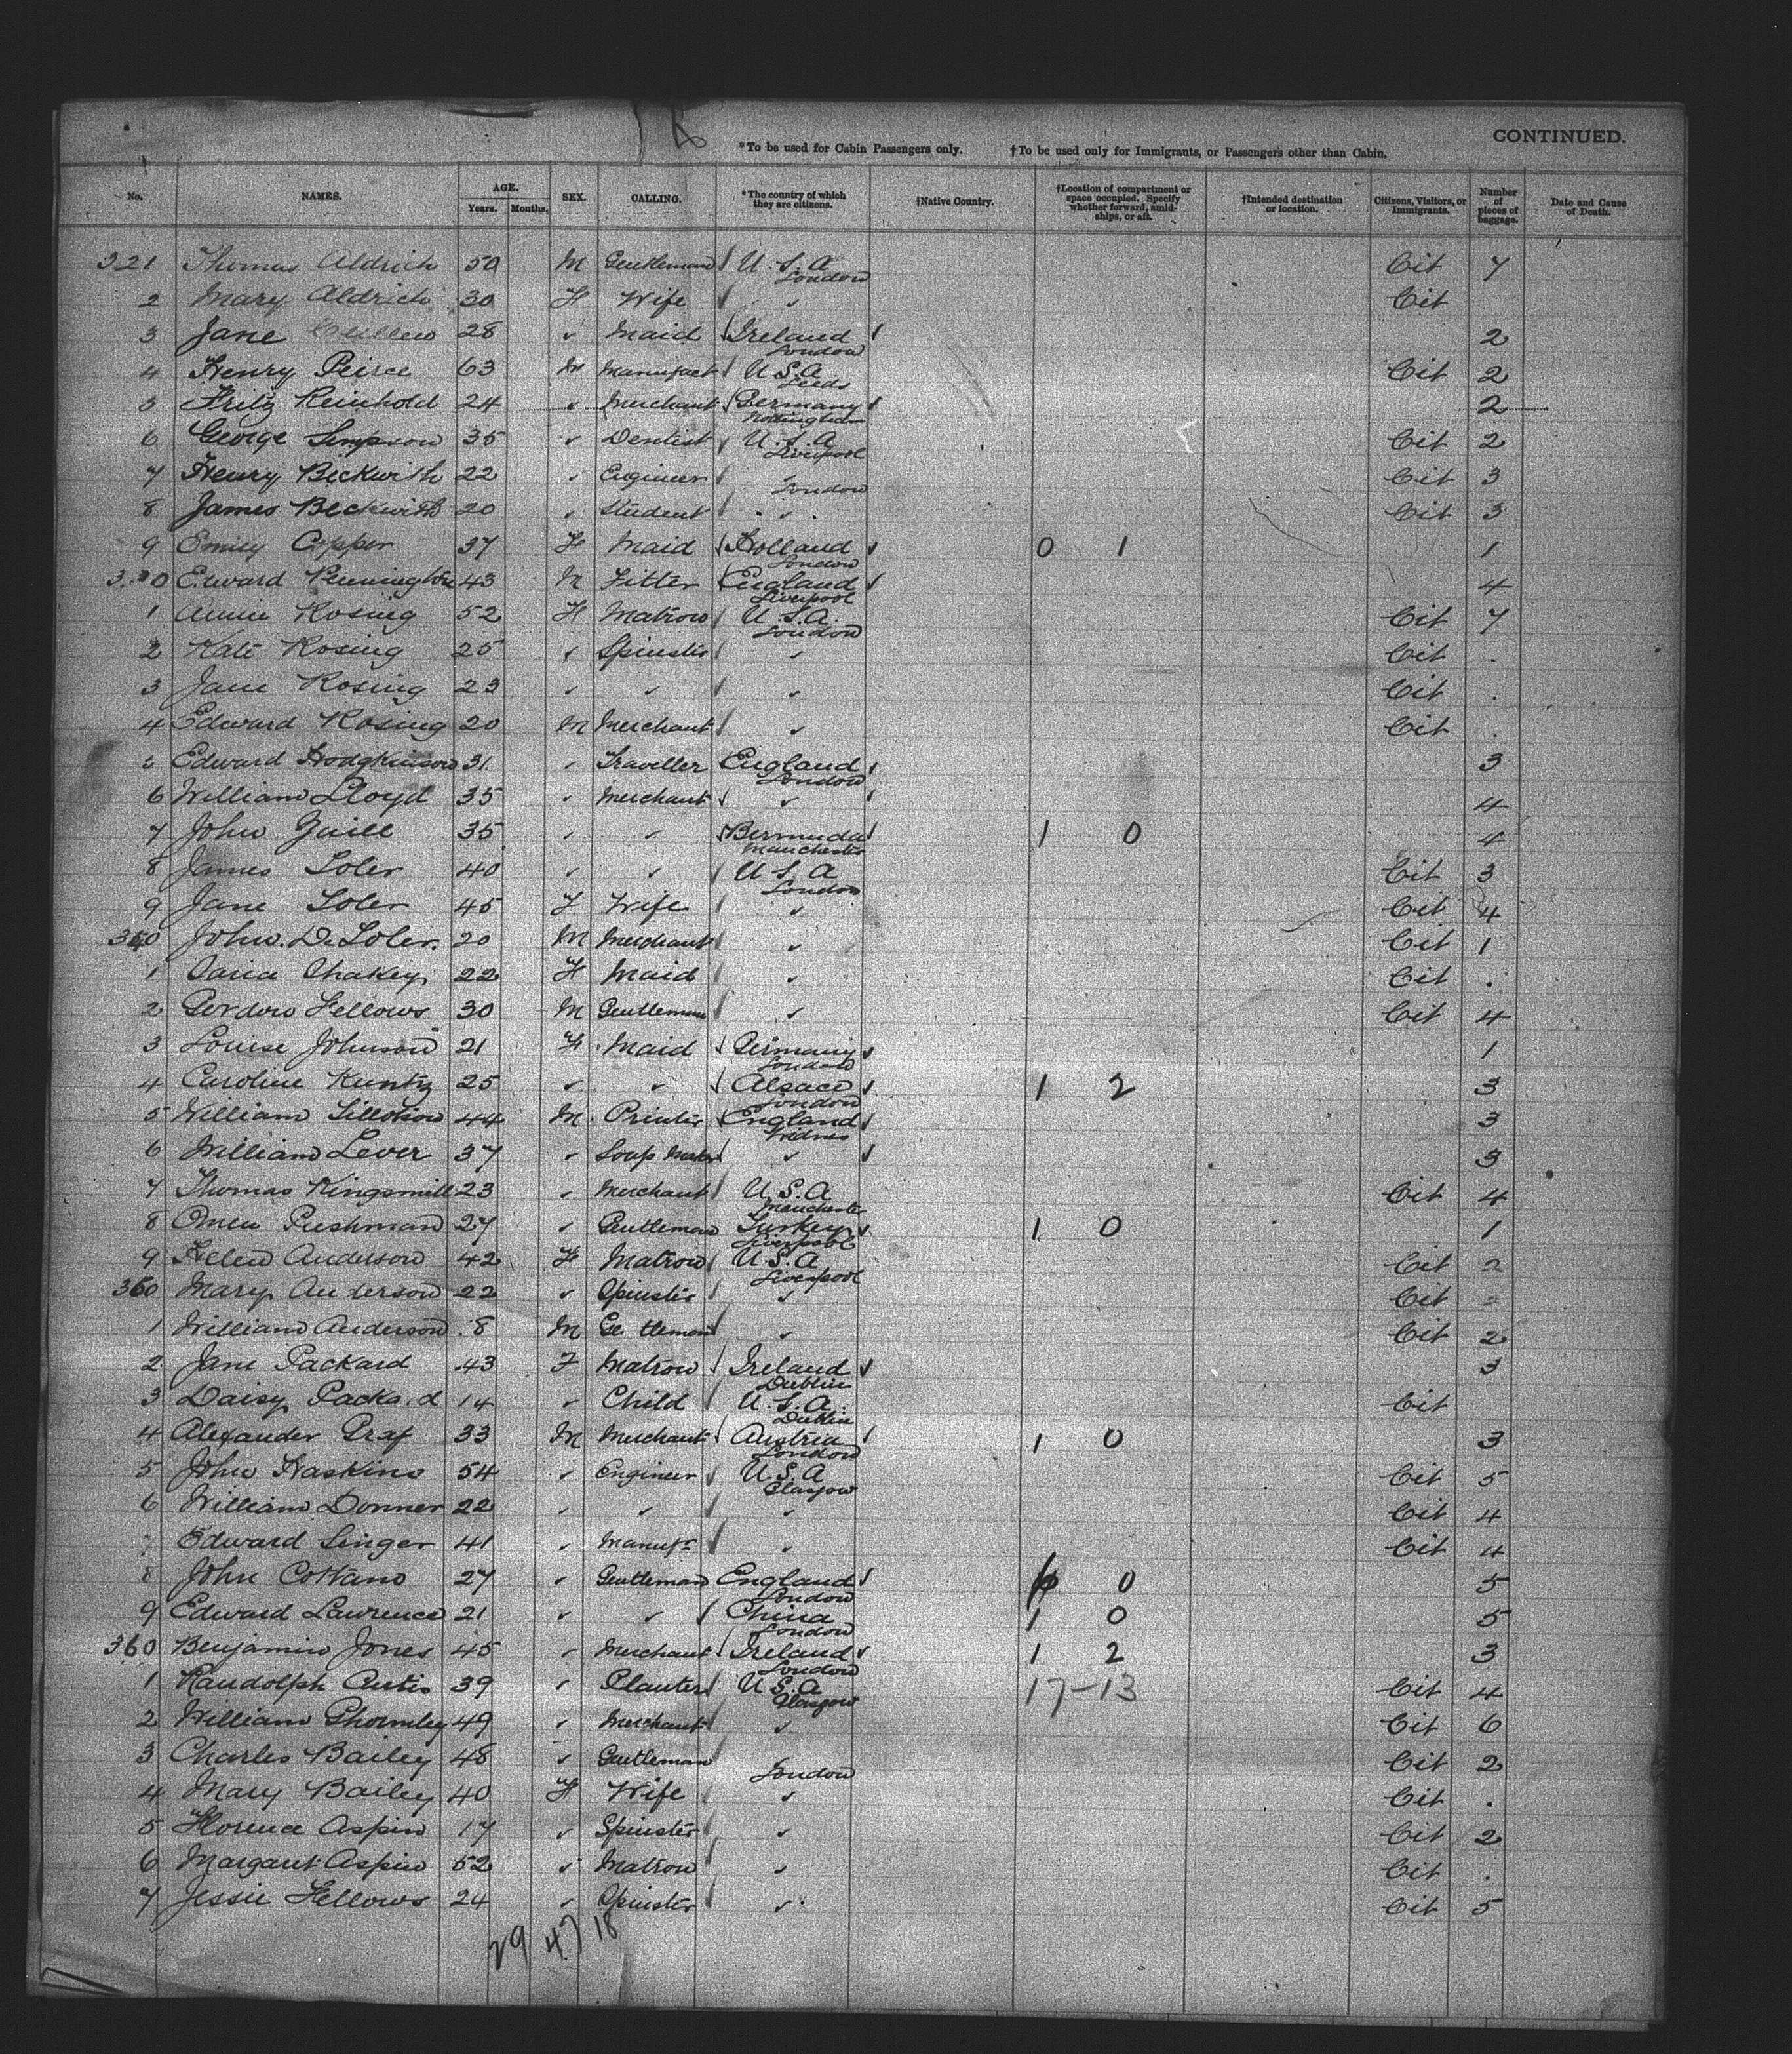 CONTINUED.
*To be used for Cabin Passengers only. †To be used only for Immigrants, or Passengers other than Cabin.
No. NAMES. AGE. Years. Months. SEX. CALLING. *The country of which they are citizens. †Native Country. †Location of compartment or space occupied. Specify whether forward, amidships, or aft. †Intended destination or location. Citizens, Visitors, or Immigrants. Number of pieces of baggage. Date and Cause of Death.
321 Thomas Aldrich 50 M Gentleman U.S.A London Cit 7
2 Mary Aldrich 30 F Wife " Cit
3 Jane 28 " Maid Ireland London 2
4 Henry Peirce 63 M Manufact U.S.A Leeds Cit 2
5 Fritz Reinhold 24 " Merchant Germany Nottingham 2
6 George Simpson 35 " Dentist U.S.A Liverpool Cit 2
7 Henry Beckwith 22 " Engineer " London Cit 3
8 James Beckwith 20 " Student " Cit 3
9 Emily Copper 37 F Maid Holland London 0 1 1
Edward Pennington 43 M Fitter England Liverpool 4
1 Annie Rosing 52 F Matron U.S.A. London Cit 7
2 Kate Rosing 25 " Spinster " Cit .
3 Jane Rosing 23 " " " Cit .
4 Edward Rosing 20 M Merchant " Cit .
Edward Hodgkinson 31 " Traveller England London 3
6 William Lloyd 35 " Merchant " 4
7 John 35 " " Bermuda Manchester 1 0 4
8 James Soler 40 " " U.S.A London Cit 3
9 Jane Soler 45 F Wife " Cit 4
John. D. Soler. 20 M Merchant " Cit 1
1 22 F Maid " Cit .
2 Gordon Fellows 30 M Gentleman " Cit 4
3 Louise Johnson 21 F Maid Germany London 1
4 Caroline Kuntz 25 " " Alsace London 1 2 3
5 William Tillotson 44 M Printer England Widnes 3
6 William Lever 37 " Soap Maker " 3
7 Thomas Kingsmill 23 " Merchant U.S.A Manchester Cit 4
8 Pushman 27 " Gentleman Turkey Liverpool 1 0 1
9 Helen Anderson 42 F Matron U.S.A Liverpool Cit 2
360 Mary Anderson 22 " Spinster " Cit 2
1 William Anderson 8 M Ge tleman " Cit 2
2 Jane Packard 43 F Matron Ireland Dublin 3
3 Daisy Packard 14 " Child U.S.A. Dublin Cit
4 Alexander Graf 33 M Merchant Austria London 1 0 3
5 John Haskins 54 " Engineer U.S.A Glasgow Cit 5
6 William Donner 22 " " " Cit 4
7 Edward Singer 41 " Manuft " Cit 4
8 John 27 " Gentleman England London 0 5
9 Edward Lawrence 21 " " China London 1 0 5
360 Benjamin Jones 45 " Merchant Ireland London 1 2 3
1 Randolph 39 " Planter U.S.A Glasgow 17-13 Cit 4
2 William Ghormley 49 " Merchant " Cit 6
3 Charles Bailey 48 " Gentleman " London Cit 2
4 Mary Bailey 40 F Wife " Cit .
5 Florence Aspin 17 " Spinster " Cit 2
6 Margaret Aspin 52 " Matron " Cit .
7 Jessie Fellows 24 " Spinster " Cit 5
29 47 18